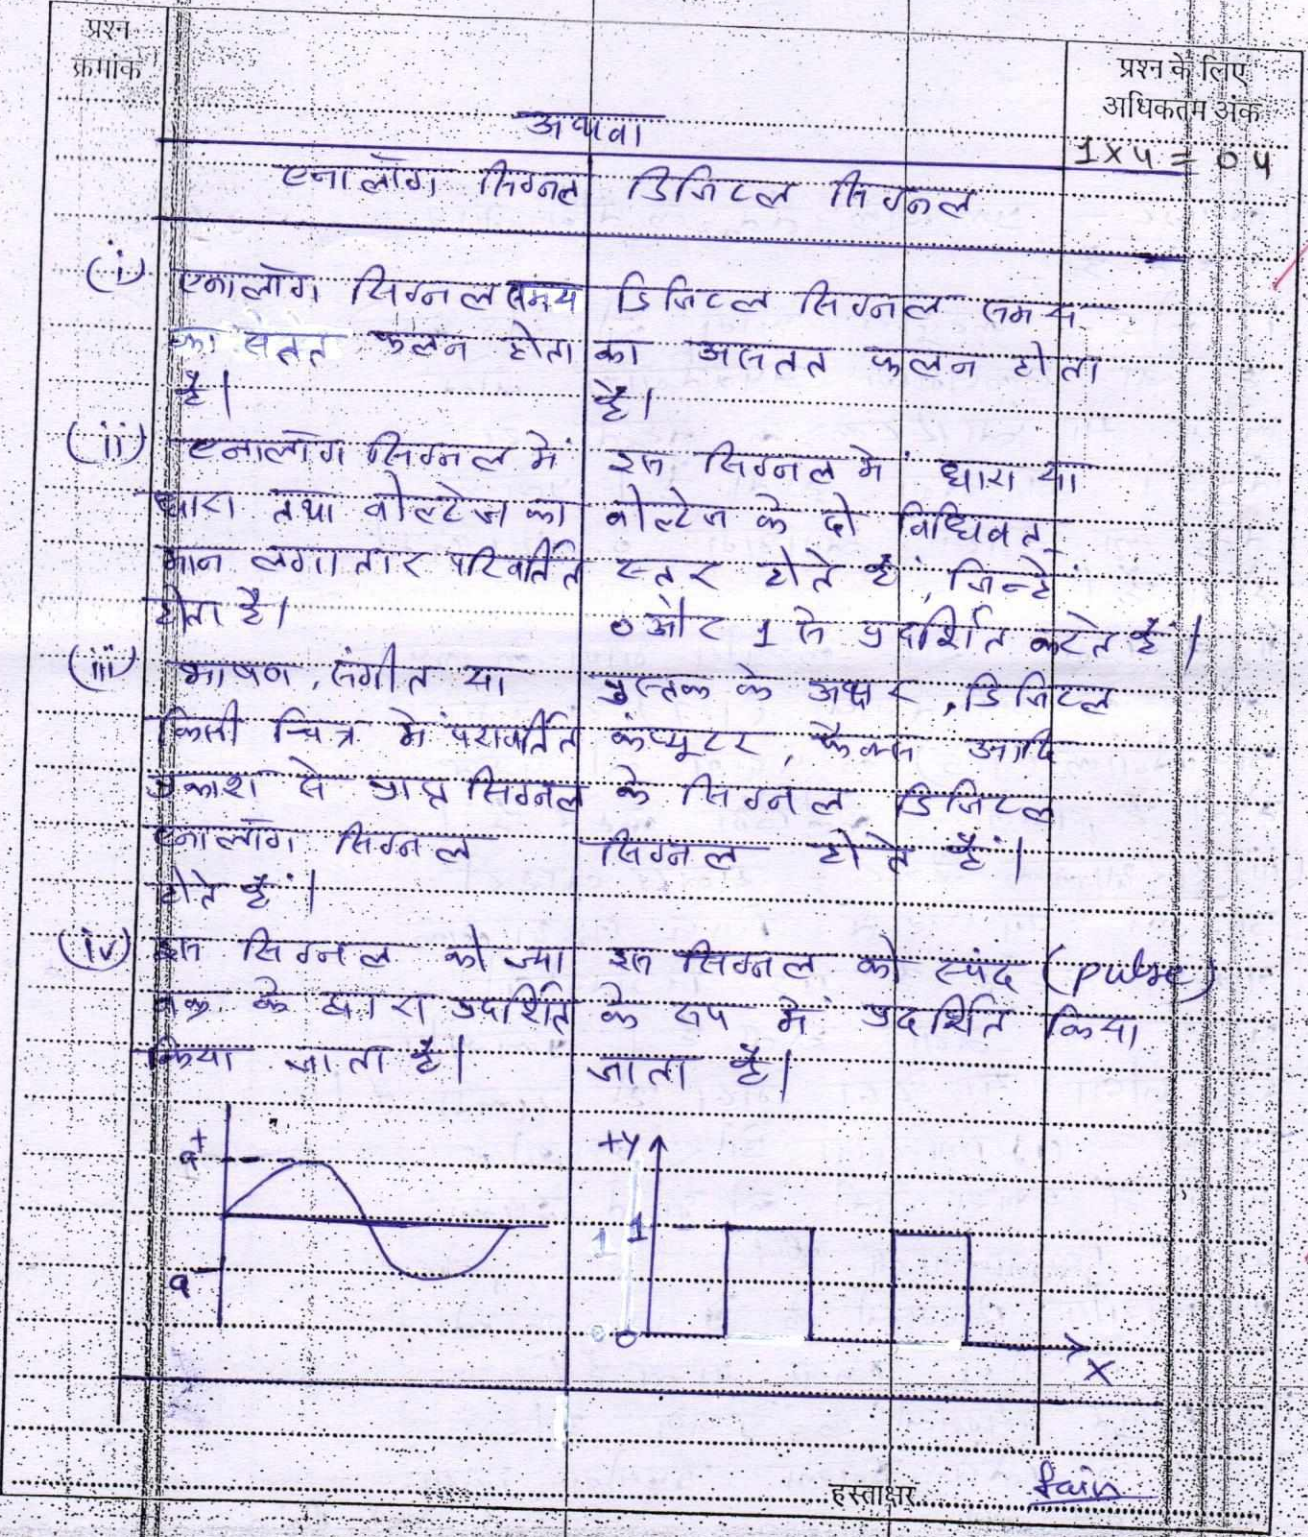 प्रश्न
क्रमांक
प्रश्न के लिए
अधिकतम अंक
अथवा
1 X 4 = 04
एनालॉग सिग्नल
डिजिटल सिग्नल
(i) एनालॉग सिग्नल समय
का सतत फलन होता
है।
डिजिटल सिग्नल समय
का असतत फलन होता
है।
(ii) एनालॉग सिग्नल में
धारा तथा वोल्टेज का
मान लगातार परिवर्तित
होता है।
इस सिग्नल में धारा या
वोल्टेज के दो विधिवत
स्तर होते हैं, जिन्हें
0 और 1 से प्रदर्शित करते हैं।
(iii) भाषण, संगीत या
किसी चित्र में परावर्तित
प्रकाश से प्राप्त सिग्नल
एनालॉग सिग्नल
होते हैं।
पुस्तक के अक्षर, डिजिटल
कंप्यूटर, फैक्स आदि
के सिग्नल डिजिटल
सिग्नल होते हैं।
(iv) इस सिग्नल को ज्या
वक्र के द्वारा प्रदर्शित
किया जाता है।
इस सिग्नल को स्पंद (pulse)
के रूप में प्रदर्शित किया
जाता है।
a+
a-
+y
1 1
0 0
X
हस्ताक्षर